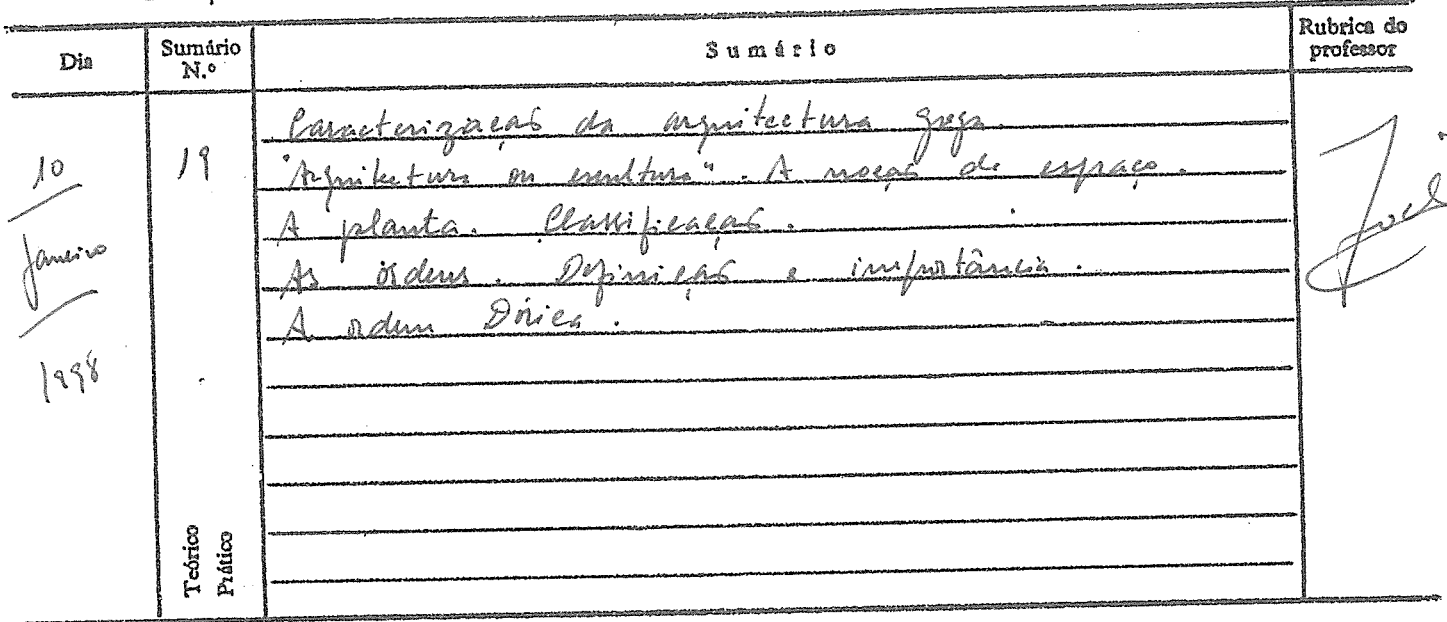 Dia
Sumário N.º
Sumário
Rubrica do professor
10
Janeiro
1998
19
Caracterização da arquitectura grega.
"Arquitectura ou escultura". A noção de espaço.
A planta. Classificação.
As ordens. Definição e importância.
A ordem Dórica.
Teórico
Prático